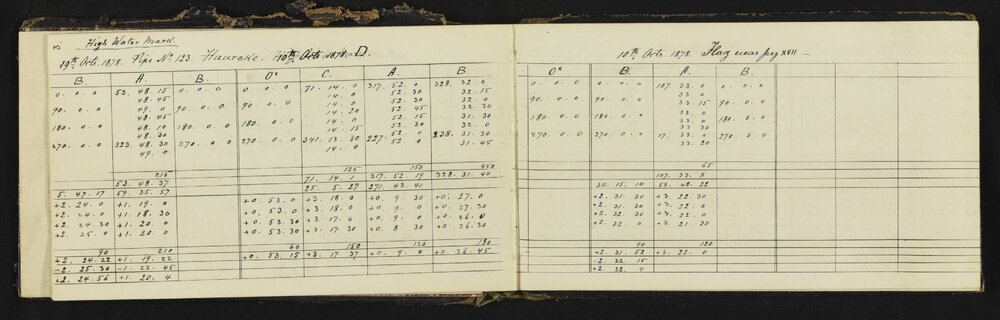 High Water Mark.
19th Octr. 1878. Pipe No 123. Haureke. 10th Octr. 1878. D.
B. A. B. O* C. A. B.
0. 0. 0 53. 48. 15 0. 0. 0 0. 0. 0 71. 14. 0 317. 52. 0 328. 32. 0
48. 45 14. 0 52. 30 32. 15
90. 0. 0 49. 0 90. 0. 0 90. 0. 0 14. 0 52. 30 32. 0
48. 45 14. 20 52. 45 32. 30
180. 0. 0 48. 10 180. 0. 0 180. 0. 0 14. 0 52. 15 31. 30
48. 30 14. 15 52. 30 32. 0
270. 0. 0 323. 48. 30 270. 0. 0 270. 0. 0 341. 13. 30 227. 52. 0 238. 31. 30
49. 0 14. 0 52. 0 31. 45
215 125 150 450
53. 48. 37 71. 14. 1 317. 52. 19 328. 31. 40
5. 47. 17 59. 35. 57 25. 5. 27 271. 43. 41
+2. 24. 0 +1. 19. 0 +0. 53. 0 +3. 18. 0 +0. 9. 30 +0. 27. 0
+2. 24. 0 +1. 18. 30 +0. 53. 0 +3. 18. 0 +0. 9. 0 +0. 27. 30
+2. 24. 30 +1. 20. 0 +0. 53. 30 +3. 17. 0 +0. 9. 0 +0. 26. 0
+2. 25. 0 +1. 20. 0 +0. 53. 30 +3. 17. 30 +0. 8. 30 +0. 26. 30
90 210 60 150 120 180
+2. 24. 22 +1. 19. 22 +0. 53. 15 +3. 17. 37 +0. 9. 0 +0. 26. 45
-2. 25. 30 -1. 22. 45
+2. 24. 56 +1. 20. 4
10th Octr. 1878. Flag near peg XVII
O* B. A. B.
0. 0. 0 0. 0. 0 107. 33. 0 0. 0. 0
33. 0
90. 0. 0 90. 0. 0 33. 15 90. 0. 0
33. 0
180. 0. 0 180. 0. 0 33. 0 180. 0. 0
33. 30
270. 0. 0 270. 0. 0 17. 33. 0 270. 0. 0
33. 20
65
107. 33. 8
311. 15. 14 58. 48. 22
+2. 31. 30 +3. 22. 30
+2. 31. 30 +3. 22. 0
+2. 32. 30 +3. 22. 0
+2. 32. 0 +3. 21. 30
90 120
+2. 31. 52 +3. 22. 0
-2. 32. 15
+2. 32. 4